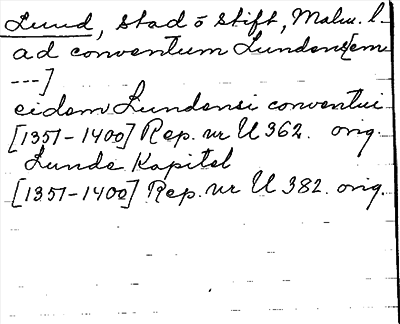 Lund, stad o stift, Malm. l.
ad conventum Lundens[em
---]
eidem Lundensi conventui
[1351-1400] Rep. nr U 362. orig.
Lunde Kapitel
[1351-1400] Rep. nr U 382. orig.